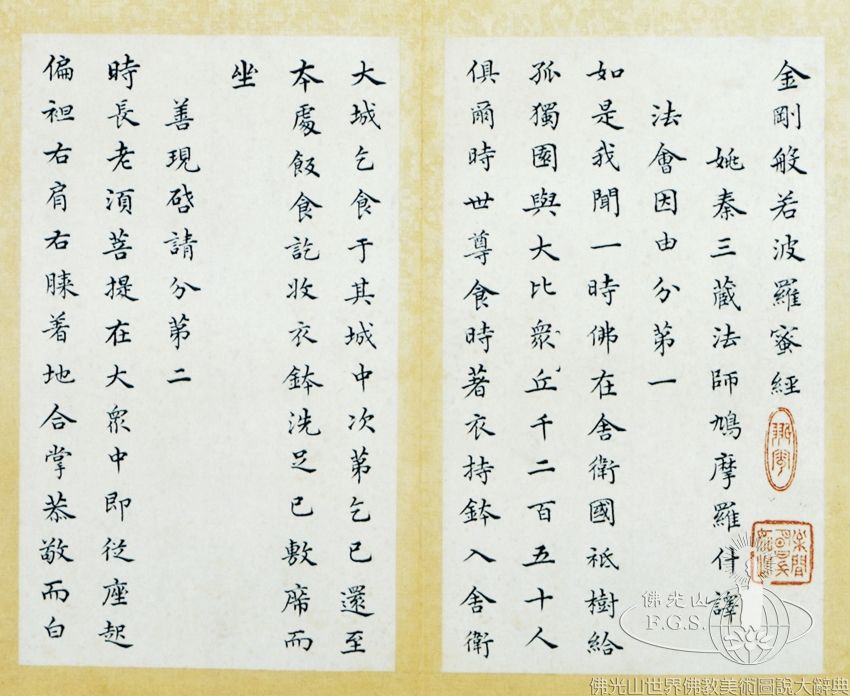 金剛般若波羅蜜經
姚秦三藏法師鳩摩羅什譯
法會因由分第一
如是我聞一時佛在舍衛國祇樹給
孤獨園與大比衆丘千二百五十人
俱爾時世尊食時著衣持鉢入舍衛
大城乞食于其城中次第乞已還至
本處飯食訖收衣鉢洗足已敷席而
坐
善現啓請分第二
時長老須菩提在大衆中即從座起
偏袒右肩右膝着地合掌恭敬而白
佛光山
F.G.S.
佛光山世界佛教美術圖說大辭典